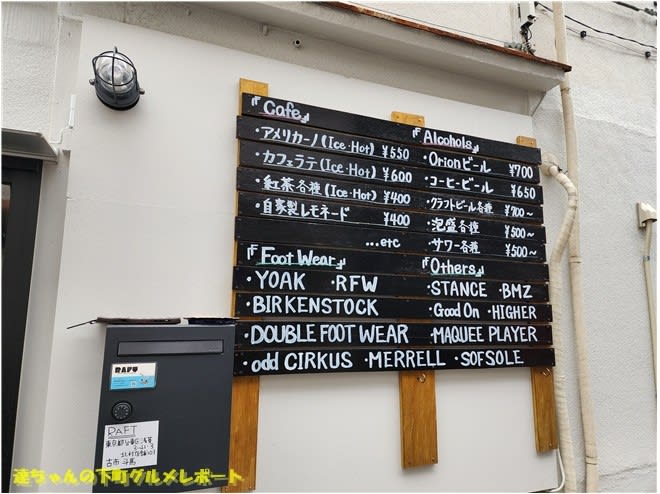 『Cafe』
・アメリカーノ(Ice・Hot) ¥550
・カフェラテ(Ice・Hot) ¥600
・紅茶各種(Ice・Hot) ¥400
・自家製レモネード ¥400
...etc
『Alcohols』
・Orionビール ¥700
・コーヒービール ¥650
・クラフトビール各種 ¥700~
・泡盛各種 ¥500~
・サワー各種 ¥500~
『Foot Wear』
・YOAK ・RFW
・BIRKENSTOCK
・DOUBLE FOOT WEAR
・odd CIRKUS ・MERRELL ・SOFSOLE
『Others』
・STANCE ・BMZ
・Good On ・HIGHER
・MAQUEE PLAYER
RAFT
RAFT
東京都台東区浅草
古市 斗馬
達ちゃんの下町グルメレポート